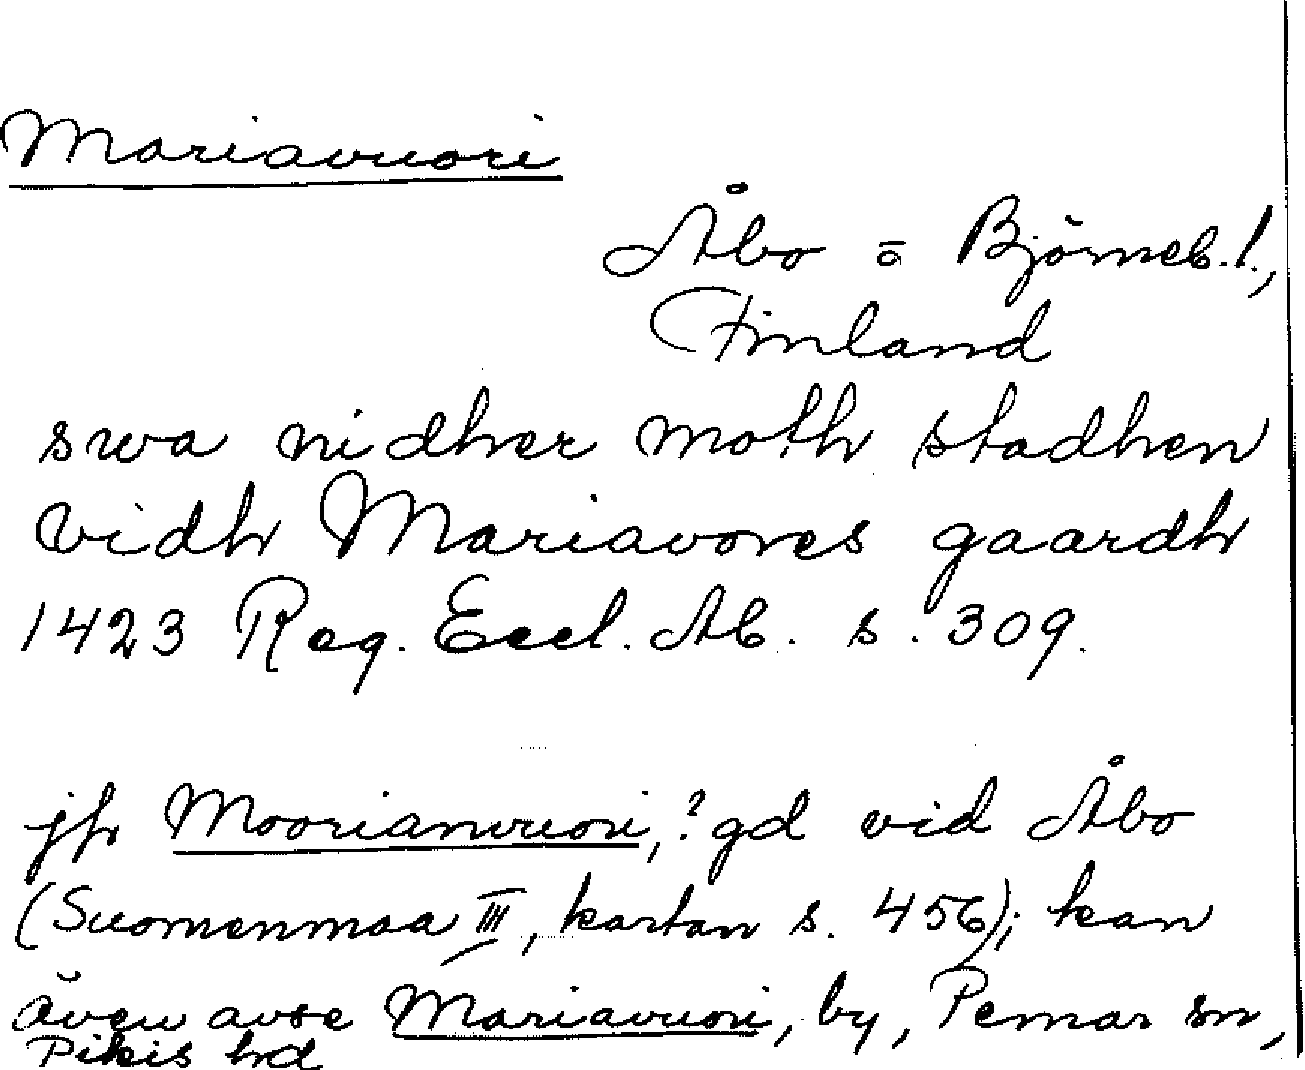 Mariavuori
Åbo o Björneb. l.,
Finland
swa nidher moth stadhen
vidh Mariavores gaardh
1423 Reg. Eccl. Ab. s. 309.
jfr Moorianvuori, ? gd vid Åbo
(Suomenmaa III, kartan s. 456); kan
även avse Mariavuori, by, Pemar sn,
Pikis hd